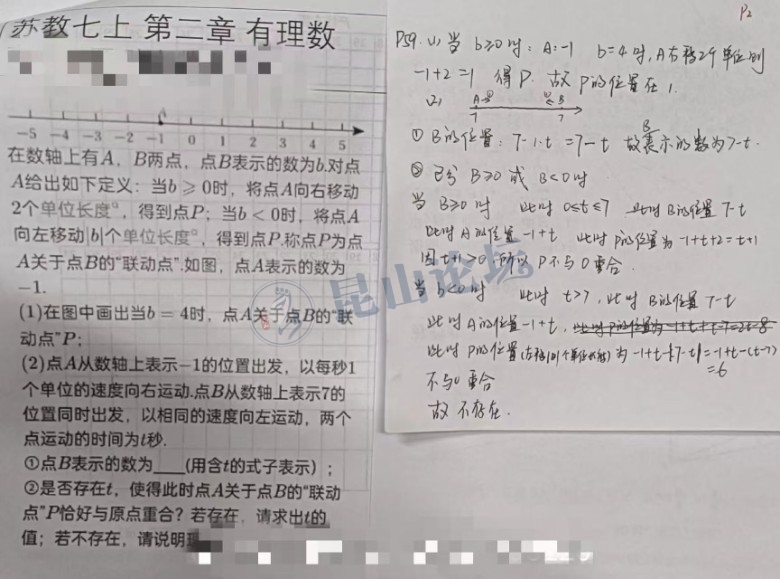 苏教七上 第二章 有理数
-5 -4 -3 -2 -1 0 1 2 3 4 5
A
在数轴上有A，B两点，点B表示的数为b.对点
A给出如下定义：当b⩾0时，将点A向右移动
2个单位长度°，得到点P；当b<0时，将点A
向左移动|b|个单位长度°，得到点P.称点P为点
A关于点B的“联动点”.如图，点A表示的数为
-1.
(1)在图中画出当b=4时，点A关于点B的“联
动点”P；
(2)点A从数轴上表示-1的位置出发，以每秒1
个单位的速度向右运动.点B从数轴上表示7的
位置同时出发，以相同的速度向左运动，两个
点运动的时间为t秒.
①点B表示的数为____(用含t的式子表示)；
②是否存在t，使得此时点A关于点B的“联动
点”P恰好与原点重合？若存在，请求出t的
值；若不存在，请说明
P2
P59. (1) 当 b≥0时: A:-1 b=4时, A右移2个单位则
-1+2=1 得P. 故P的位置在1.
(2)
① B的位置: 7-1·t=7-t 故B表示的数为7-t.
② 已分 B≥0 或 B<0时
当 B≥0时 此时 0≤t≤7 此时B的位置 7-t
此时A的位置-1+t 此时P的位置为-1+t+2=t+1
因t+1>0, 所以P不与0重合.
当 b<0时 此时 t>7, 此时B的位置 7-t
此时A的位置-1+t, 此时P的位置为-1+t+t-7=2t-8
此时P的位置 为-1+t-|7-t|=-1+t-(t-7)
=6
不与0重合
故不存在.
昆山论坛